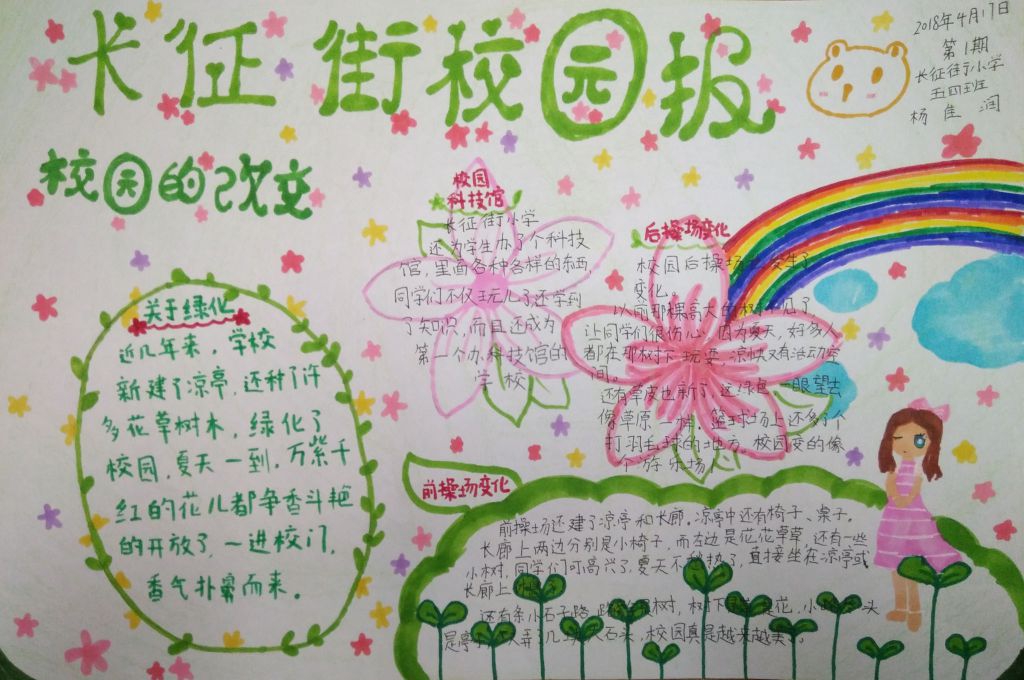 长征街校园报
2018年4月17日
第1期
长征街小学
五四班
杨佳润
校园的改变
关于绿化
近几年来，学校
新建了凉亭，还种了许
多花草树木，绿化了
校园，夏天一到，万紫千
红的花儿都争香斗艳
的开放了，一进校门，
香气扑鼻而来。
校园
科技馆
长征街小学
还为学生办了个科技
馆，里面各种各样的东西，
同学们不仅玩儿了还学到
了知识，而且还成为
第一个办科技馆的
学校
后操场变化
校园后操场 发生了
变化。
以前那棵高大的树不见了，
让同学们很伤心，因为夏天，好多人
都在那树下玩耍，凉快又有活动空
间。
还有草皮也新了，这绿色一眼望去
像草原一样，篮球场上还多了个
打羽毛球的地方，校园变的像
个游乐场
前操场变化
前操场还建了凉亭和长廊，凉亭中还有椅子、桌子。
长廊上两边分别是小椅子，而左边是花花草草，还有一些
小树，同学们可高兴了，夏天不 热了，直接坐在凉亭或
长廊上
还有条小石子路， 树，树下 花，小
是 弄了几 大石头，校园真是越来越美